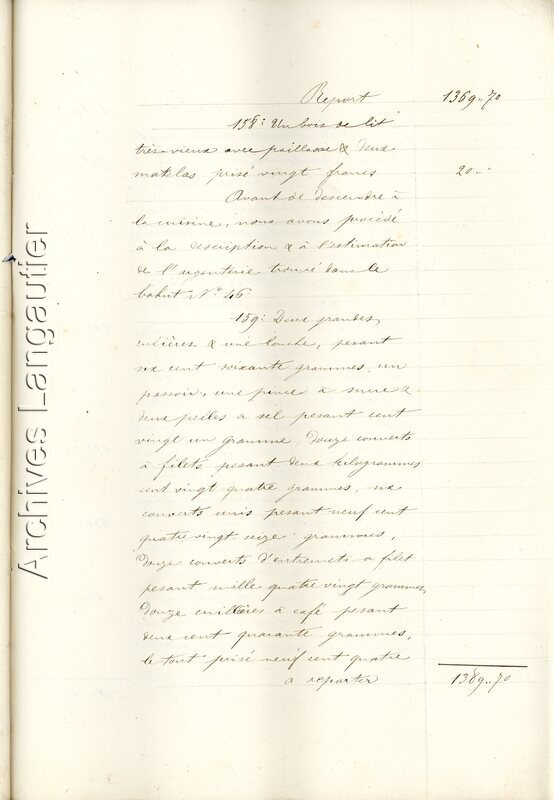 Report 1369.. 70
158: Un bois de lit
très vieux avec paillasse & deux
matelas prisé vingt francs 20 .. "
Avant de descendre à
la cuisine, nous avons procédé
à la description & à l'estimation
de l'argenterie trouvé dans le
bahut No 46.
159: Deux grandes
cuillères & une louche, pesant
six cent soixante grammes, un
passoir, une pince à sucre &
deux pelles a sel pesant cent
vingt un gramme, douze couverts
à filets pesant deux kilogrammes
cent vingt quatre grammes, six
couverts unis pesant neuf cent
quatre vingt seize grammes,
douze couverts d'entremets a filet
pesant mille quatre vingt grammes,
douze cuillères à café pesant
deux cent quarante grammes,
le tout prisé neuf cent quatre
a reporter 1389.. 70
Archives Langautier